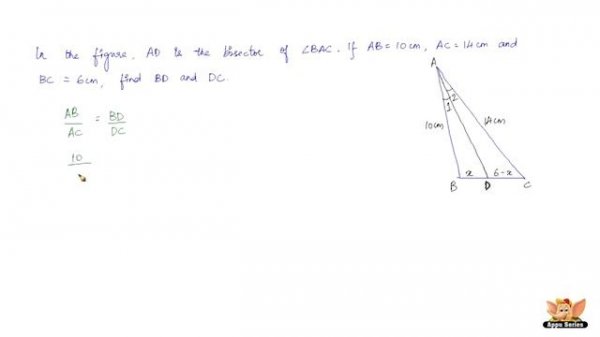 In the figure, AD is the bisector of ∠BAC. If AB = 10cm, AC = 14cm and
BC = 6cm, find BD and DC.
AB/AC = BD/DC
10
A
1 2
10cm 14cm
x 6-x
B D C
Appu Series